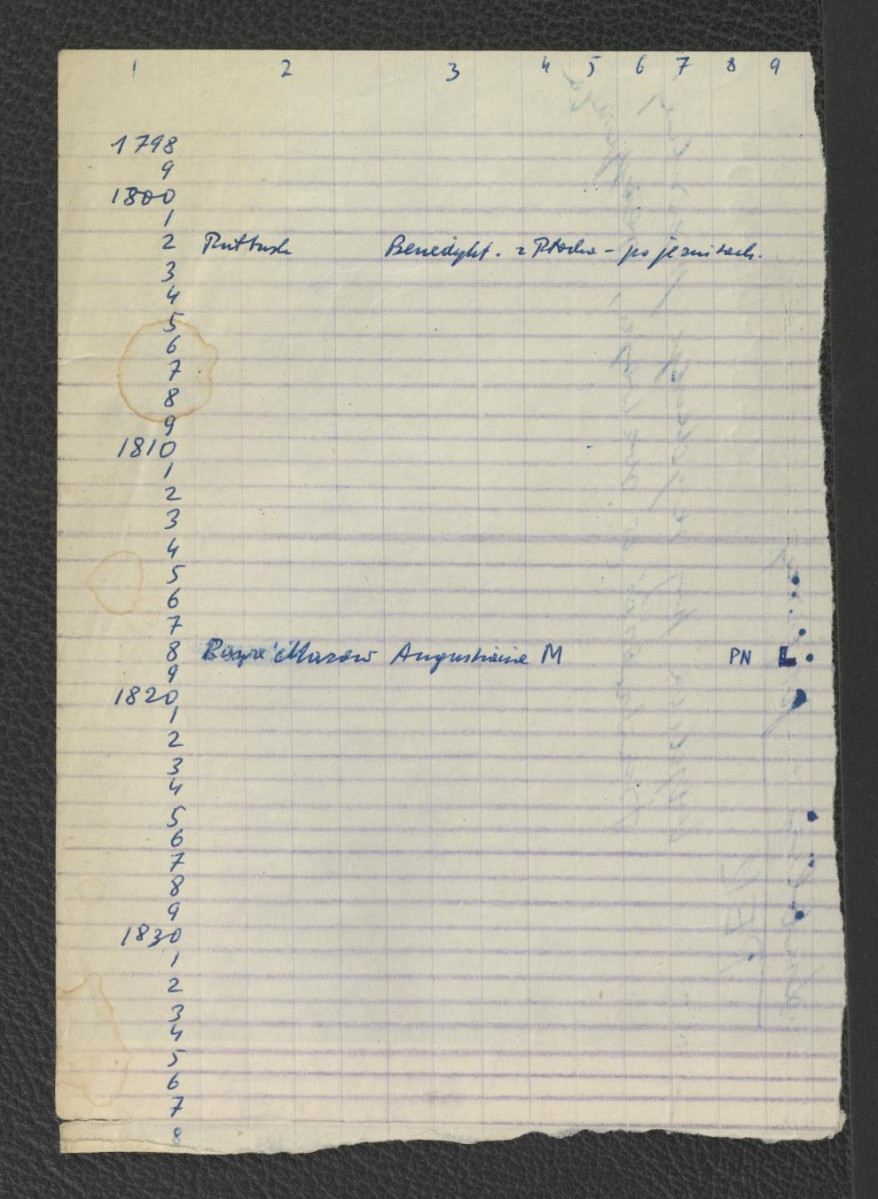 1 2 3 4 5 6 7 8 9
1798
9
1800
1
2 Pułtusk Benedykt. z Płocka - po jezuitach.
3
4
5
6
7
8
9
1810
1
2
3
4
5
6
7
8 Augustianie M PN L
9
1820
1
2
3
4
5
6
7
8
9
1830
1
2
3
4
5
6
7
8